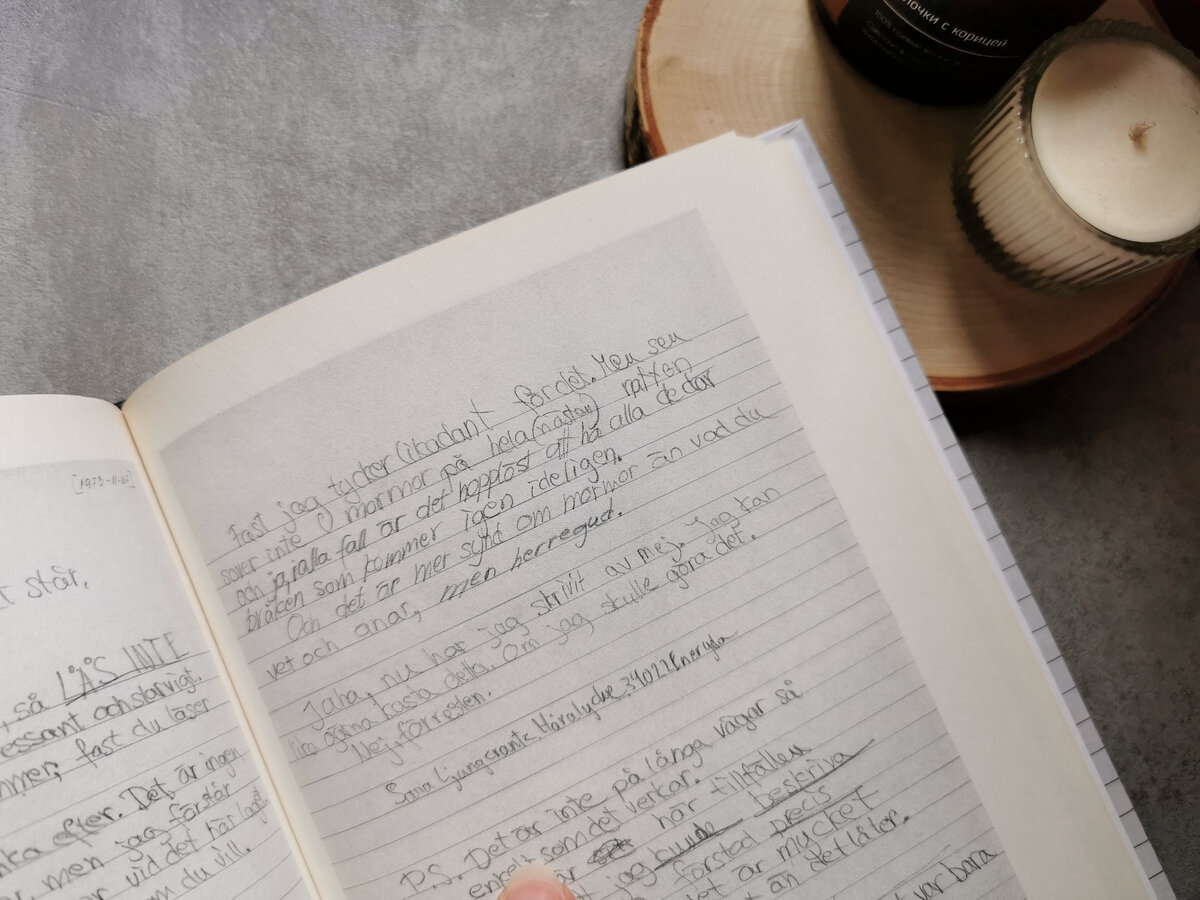 лочки с корицей
[1973-11-01]
står.
, så LÄS INTE
essant och starvigt.
mmer, fast du läser
ka efter. Det är ingen
, men jag förstår
vid det här laget.
m du vill.
Fast jag tycker likadant för det. Men sen
sover inte mormor på hela (nästan) natten
och i alla fall är det hopplöst att ha alla de där
bråken som kommer igen ideligen.
Och det är mer synd om mormor än vad du
vet och anar, men herregud.
Jaha, nu har jag skrivit av mej. Jag kan
lika gärna kasta detta. Om jag skulle göra det.
Nej, förresten.
Sara Ljungcrantz Häralycke 34021 Eneryda
P.S. Det är inte på långa vägar så
enkelt som det verkar.
är här tillfällen
jag kunde beskriva
förstod precis
det är mycket
än det låter.
t var bara